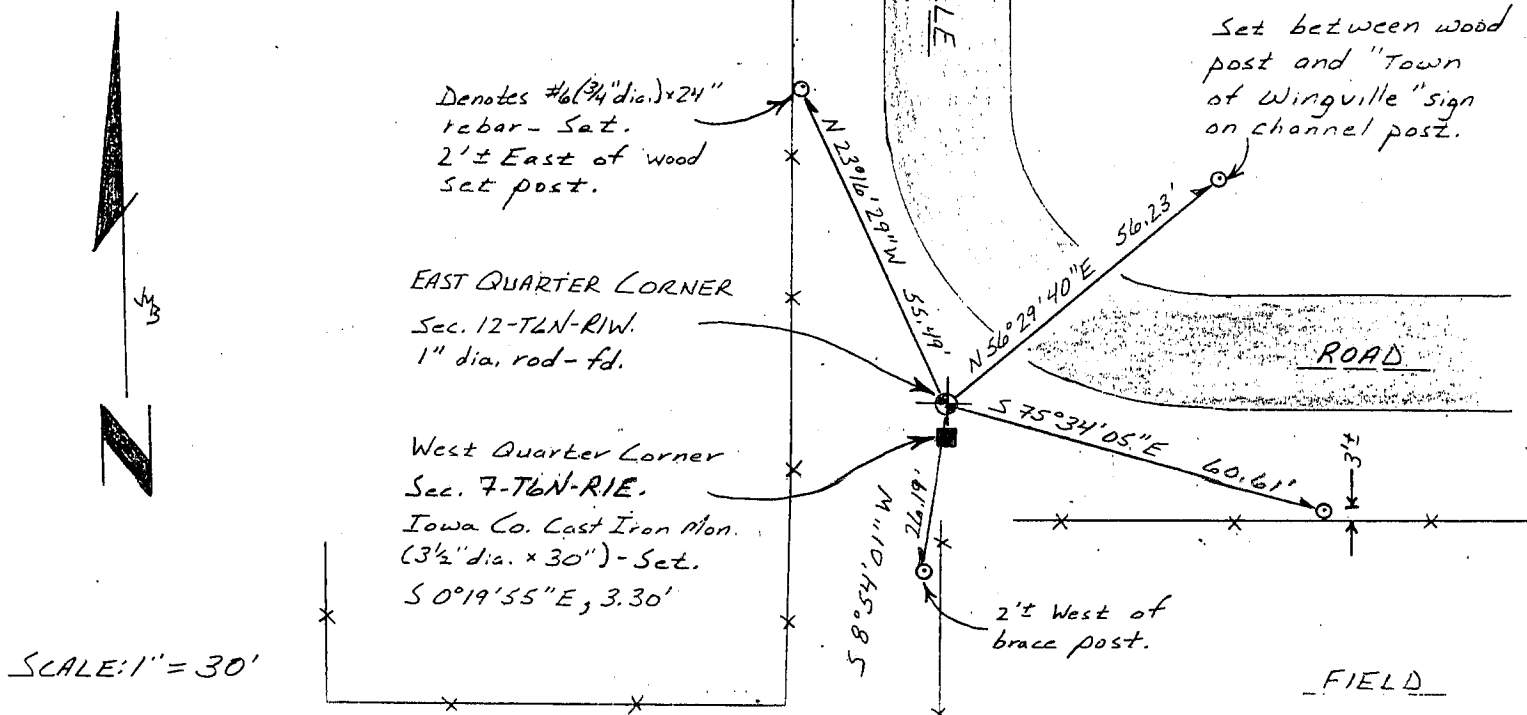 LLE
Set between wood
post and "Town
of Wingville" sign
on channel post.
Denotes #6(3/4" dia.)x24"
rebar - Set.
2'± East of wood
set post.
N 23°16'29"W 55.49'
N 56°29'40"E 56.23'
EAST QUARTER CORNER
Sec. 12-T6N-R1W.
1" dia. rod - fd.
ROAD
S 75°34'05"E 60.61'
3'±
West Quarter Corner
Sec. 7-T6N-R1E.
Iowa Co. Cast Iron Mon.
(3½" dia. x 30") - Set.
S 0°19'55"E, 3.30'
S 8°54'01"W 26.19'
2'± West of
brace post.
N
SCALE: 1" = 30'
FIELD